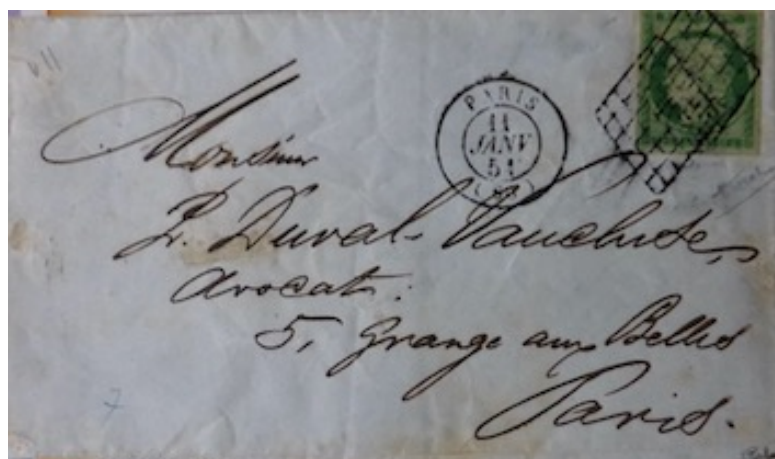 PARIS
11
JANV
51
(60)
Monsieur
P. Duval-Vaucluse,
Avocat.
5, Grange aux Belles
Paris.
7